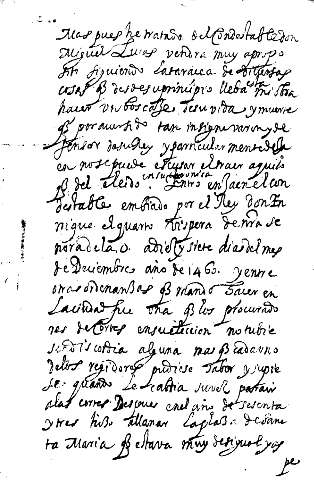 Mas pues he tratado del Condestable don
Miguel Lucas vendra muy a proposi
siguiendo la taracea de diversas
cosas q desde su principio lleba mi istra
hacer un bosca de su vida y muerte
q por aver sido tan insigne varon y de
fensor de su Rey y particular mente de Ja
en no se puede escusar el traer aqui lo
q del e leido. en su coronica Entro en Jaen el con
destable embiado por el Rey don En
rrique el quarto vispera de nra se
ñora de la .o. a diez y siete dias del mes
de Deciembre año de 1460. y entre
otras ordenansas q mando hacer en
la ciudad fue una q los procurado
res de Cortes en su eleccion no tubie
se discordia alguna mas q cada uno
de los regidores pudiese saber y supie
se quando le cabia suvez para ir
a las cortes. Despues en el año de sesenta
y tres hizo allanar la plaza de San
ta Maria q estava muy desigual y os
pe